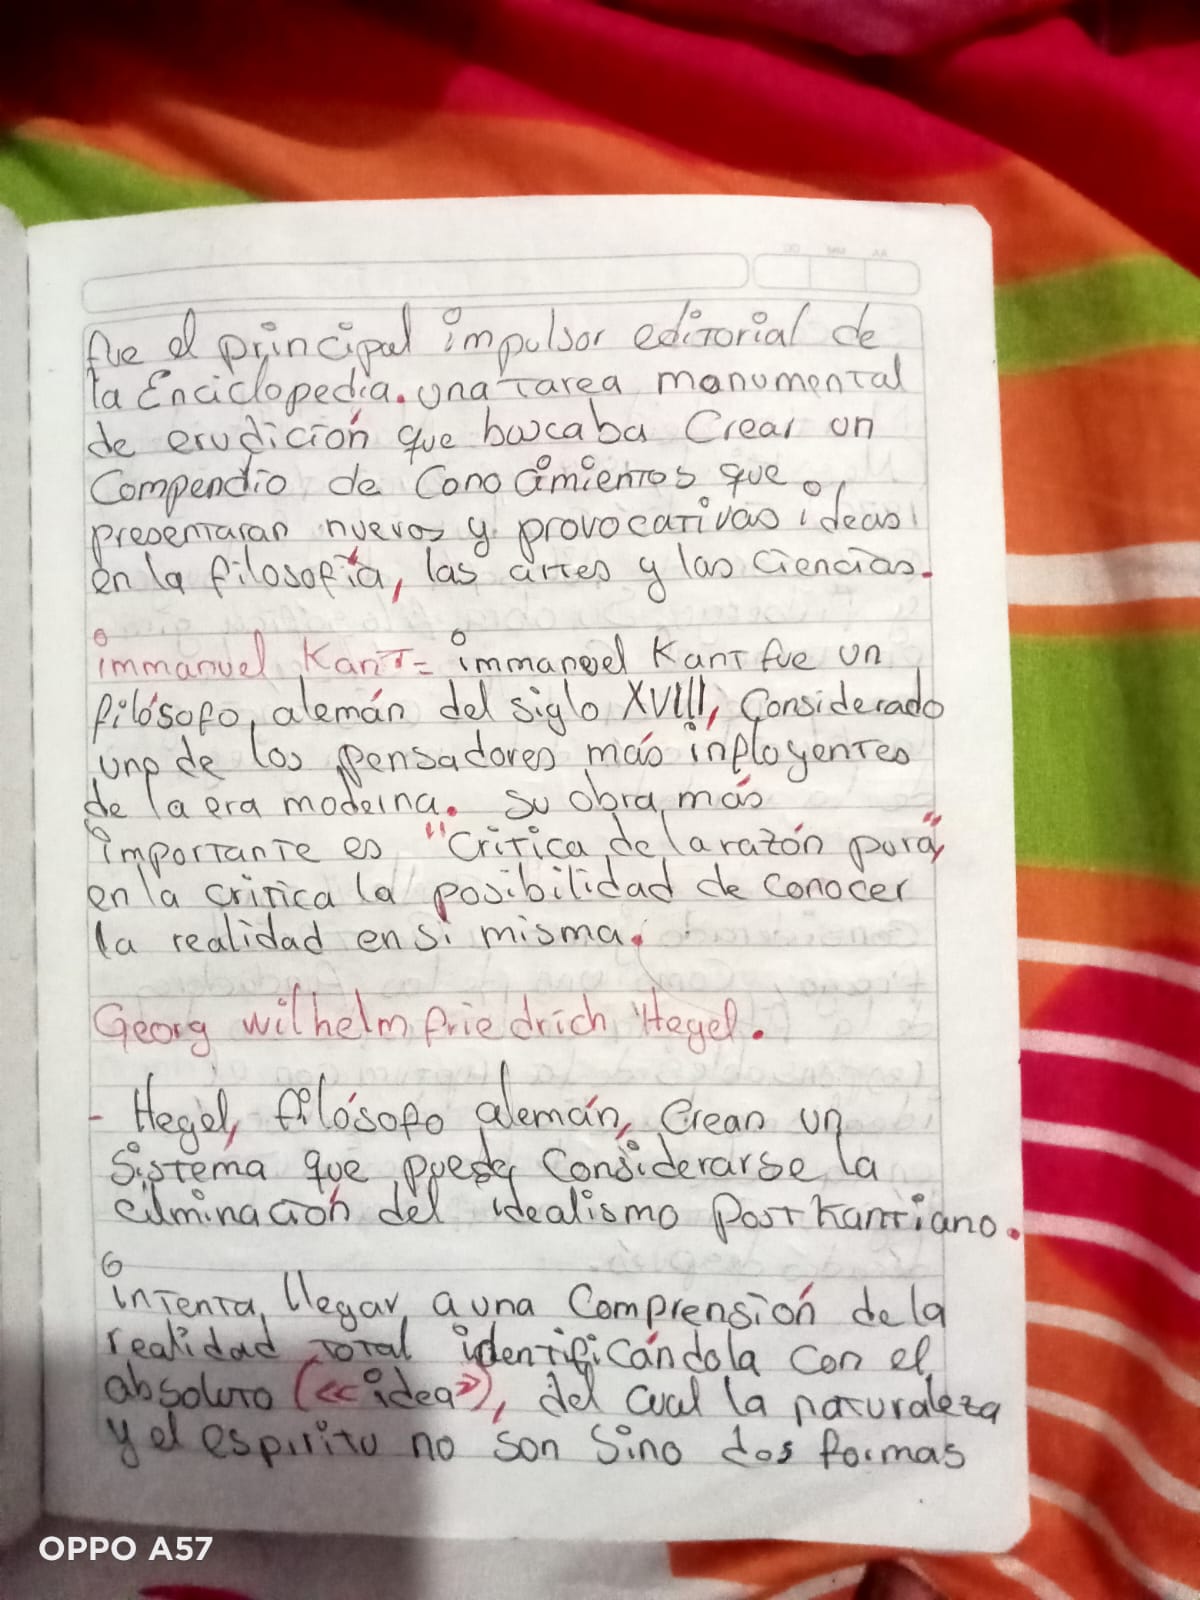 fue el principal impulsor editorial de
la Enciclopedia. una tarea monumental
de erudición que buscaba Crear un
Compendio de Conocimientos que
presentaran nuevos y provocativas ideas
en la filosofía, las artes y las Ciencias.
immanuel Kant= immanuel Kant fue un
filósofo, alemán del siglo XVIII, Considerado
uno de los pensadores más influyentes
de la era moderna. Su obra más
importante es "Critica de la razón pura",
en la critica la posibilidad de conocer
la realidad en si misma.
Georg wilhelm friedrich Hegel.
- Hegel, filósofo alemán, Crean un
Sistema que puede Considerarse la
culminación del idealismo Postkantiano.
intenta llegar a una Comprensión de la
realidad total identificándola con el
absoluto («idea»), del cual la naturaleza
y el espiritu no son Sino dos formas
OPPO A57